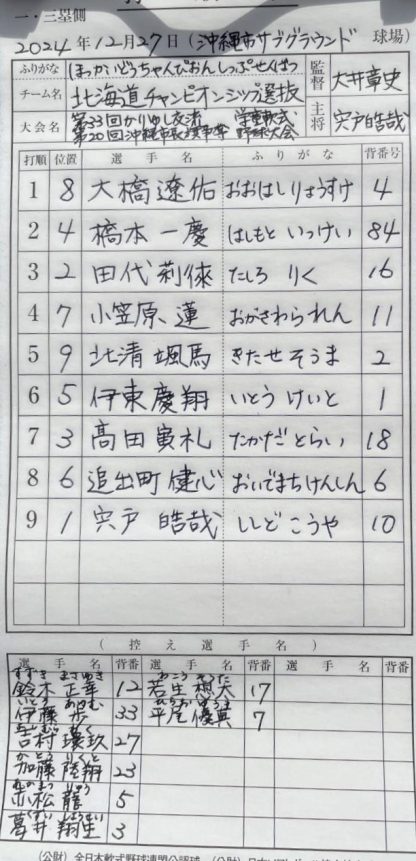 一・三塁側
2024年12月27日(沖縄市サブグラウンド 球場)
ふりがな ほっかいどうちゃんぴおんしっぷせんばつ 監督 大井章史
チーム名 北海道チャンピオンシップ選抜
大会名 第33回かりゆし交流 学童軟式 主将 宍戸皓哉
第20回沖縄市長 野球大会
打順 位置 選手名 ふりがな 背番号
1 8 大橋遼佑 おおはしりょうすけ 4
2 4 橋本一慶 はしもと いっけい 84
3 2 田代莉徠 たしろ りく 16
4 7 小笠原蓮 おがさわられん 11
5 9 北清颯馬 きたせ そうま 2
6 5 伊東慶翔 いとう けいと 1
7 3 高田寅礼 たかだ とらい 18
8 6 追出町健心 おいでまちけんしん 6
9 1 宍戸皓哉 ししど こうや 10
(控え選手名)
選手名 背番 選手名 背番 選手名 背番
すずき まさゆき
鈴木 正幸 12 若生 想大 17
伊藤 歩 33 平尾 優真 7
吉村 環玖 27
加藤 陸翔 23
小松 5
葛井 翔生 3
(公財)全日本軟式野球連盟公認球